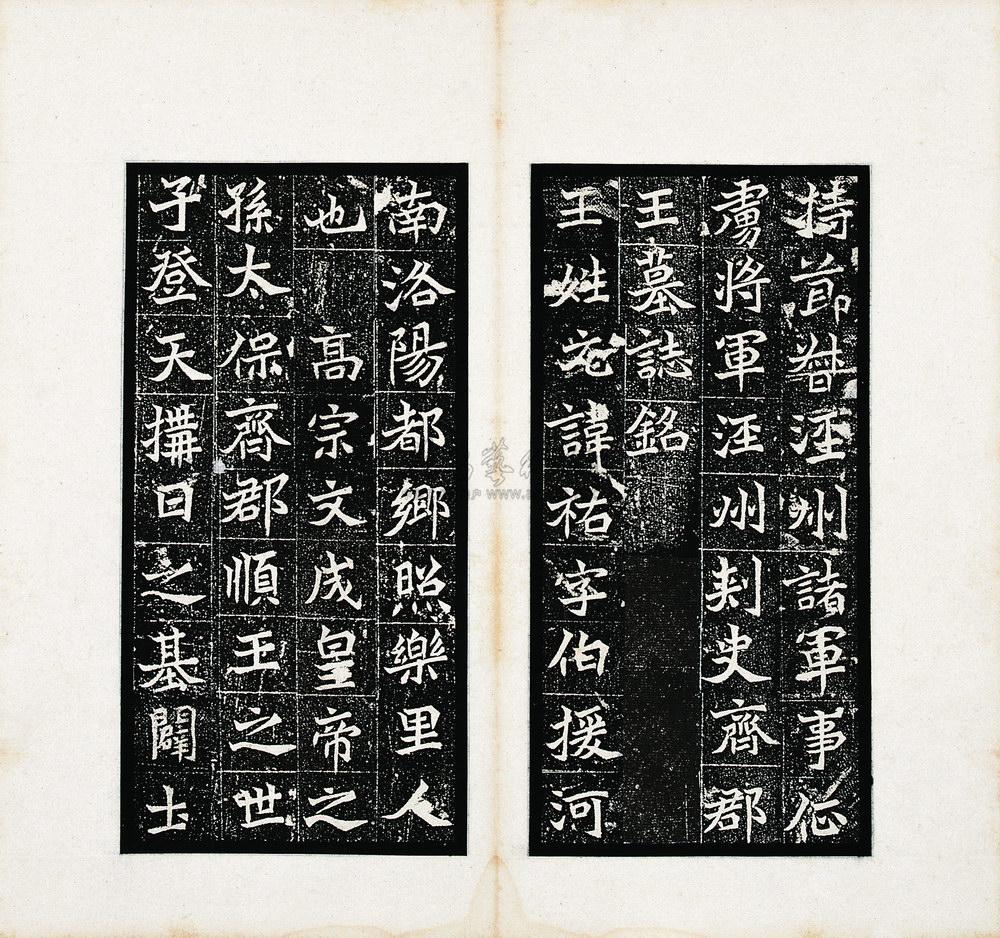 持節督涇州諸軍事征
虜將軍涇州刺史齊郡
王墓誌銘
王姓元諱祐字伯援河
南洛陽都鄉照樂里人
也高宗文成皇帝之
孫太保齊郡順王之世
子登天構日之基闢土